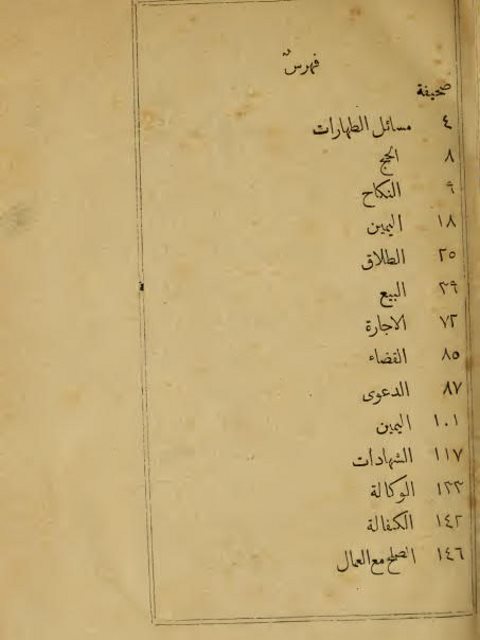 فهرس
صحيفة
٤ مسائل الطهارات
٨ الحج
٩ النكاح
١٨ اليمين
٢٥ الطلاق
٣٩ البيع
٧٢ الاجارة
٨٥ القضاء
٨٧ الدعوى
١٠١ اليمين
١١٧ الشهادات
١٣٣ الوكالة
١٤٢ الكفالة
١٤٦ الصلح مع العمال